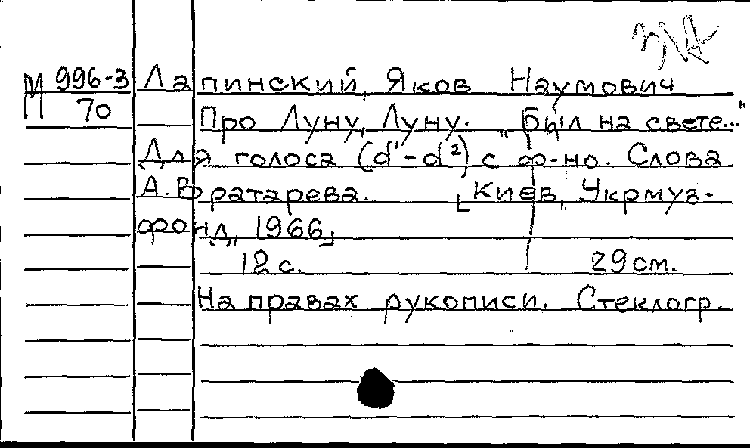 М 996-3 Лапинский, Яков Наумович
70 Про Луну, Луну. „Был на свете..."
Для голоса (d¹-d²) с ф-но. Слова
А. Вратарева. [Киев, Укрмуз-
фонд, 1966]
12 с. 29 см.
На правах рукописи. Стеклогр.